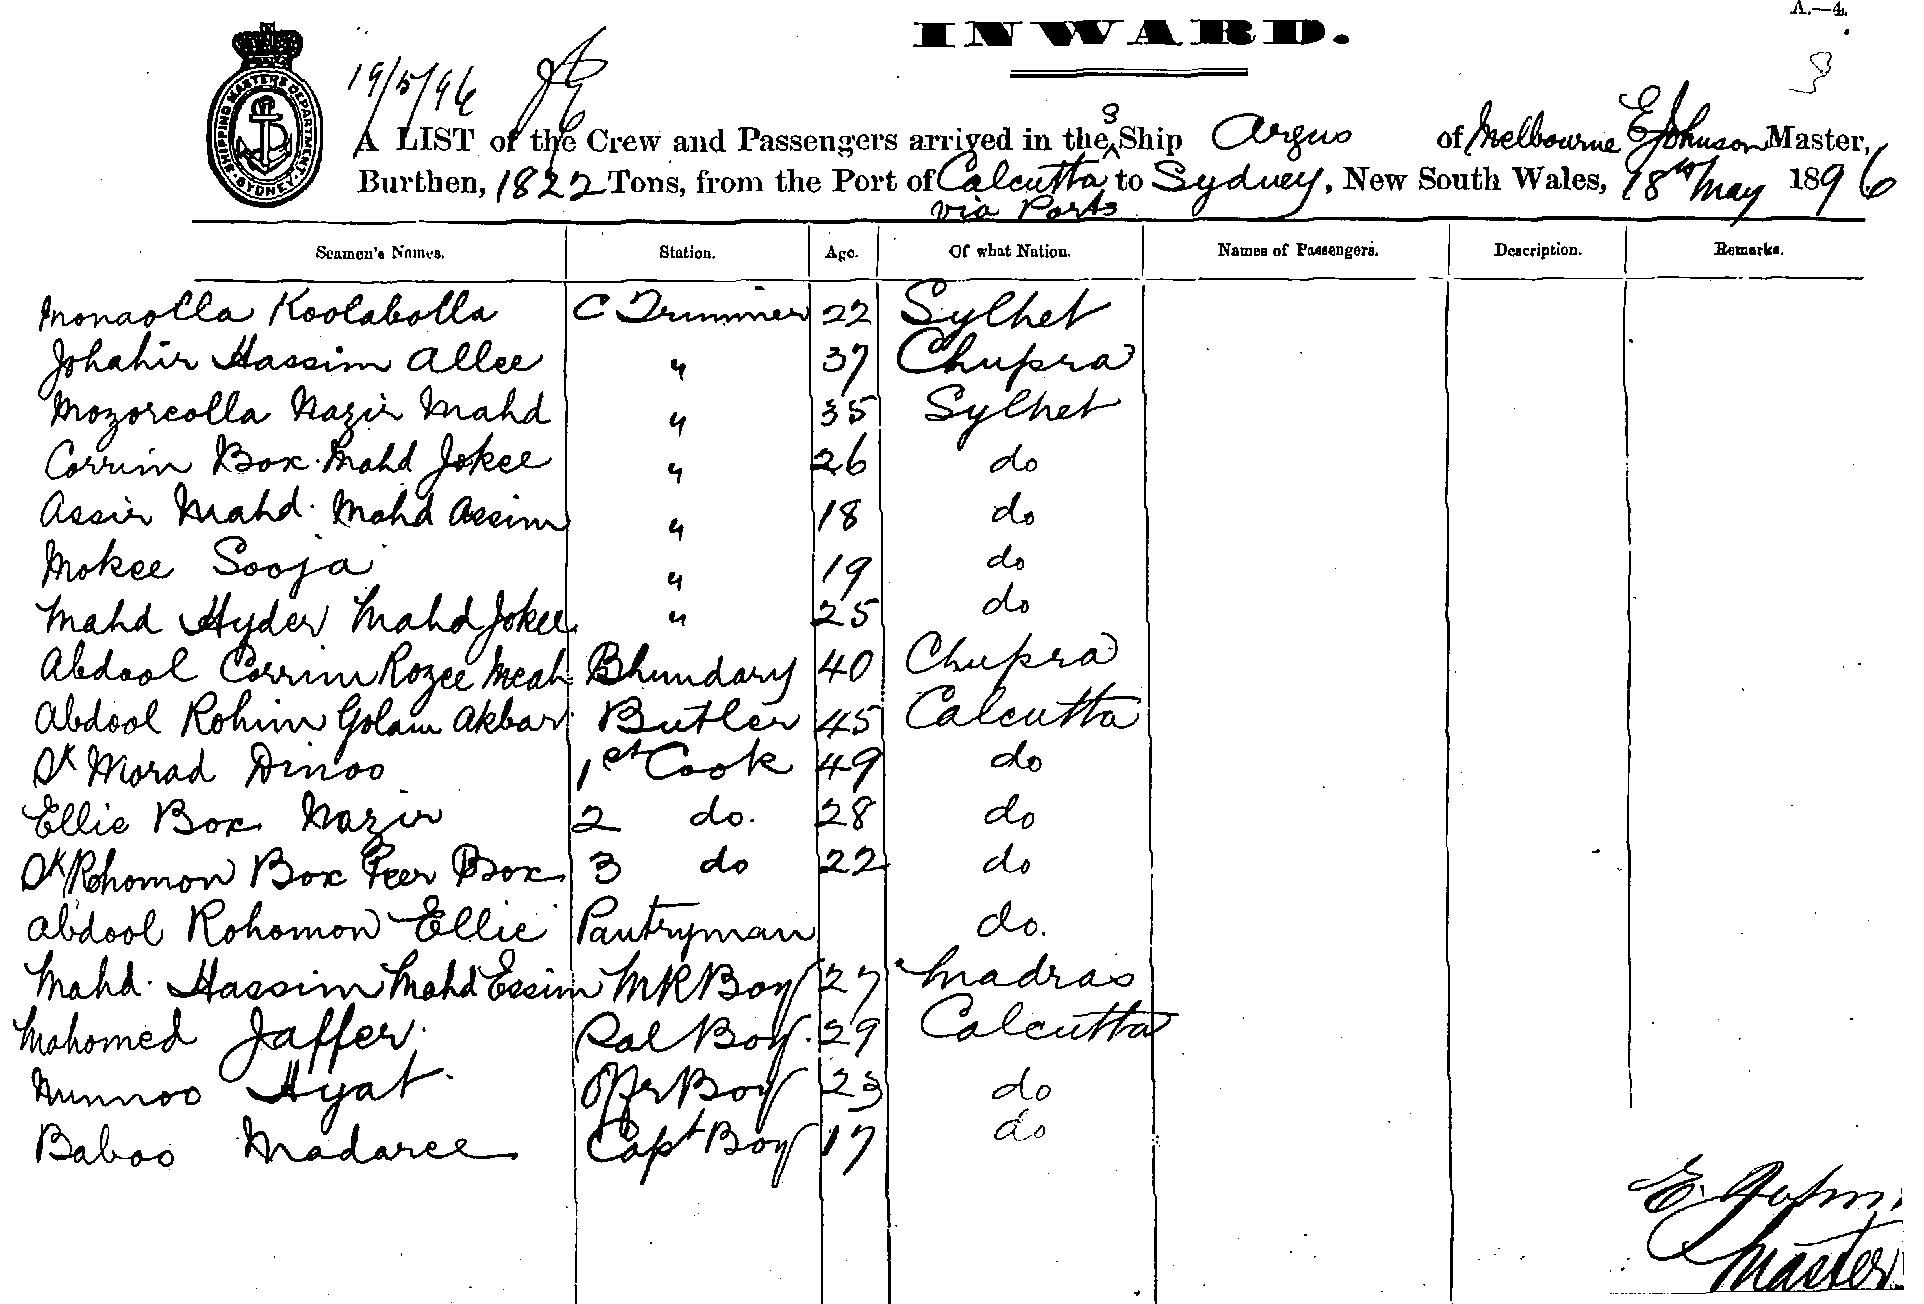 A.—4.
INWARD.
3
SHIPPING MASTER'S DEPARTMENT
SYDNEY
19/5/96
A LIST of the Crew and Passengers arrived in the S Ship Argus of Melbourne E Johnson Master,
Burthen, 1822 Tons, from the Port of Calcutta to Sydney, New South Wales, 18th May 1896
via Ports
Seamen's Names. Station. Age. Of what Nation. Names of Passengers. Description. Remarks.
Monaolla Koolabolla C Trimmer 22 Sylhet
Johahir Hassim Allee " 37 Chupra
Mozorcolla Nazir Mahd " 35 Sylhet
Corrim Box Mahd Jokee " 26 do
Assir Mahd. Mahd Assim " 18 do
Mokee Sooja " 19 do
Mahd Hyder Mahd Jokee " 25 do
Abdool Corrim Rozee Meah Bhundary 40 Chupra
Abdool Rohim Golam Akbar Butler 45 Calcutta
Sk Morad Dinoo 1st Cook 49 do
Ellie Box Nazir 2 do. 28 do
Sk Rohomon Box Peer Box 3 do 22 do
Abdool Rohomon Ellie Pantryman do.
Mahd. Hassim Mahd Essim MR Boy 27 Madras
Mahomed Jaffer. Sal Boy. 29 Calcutta
Nunnoo Hyat. Offr Boy 23 do
Baboo Madaree Capt Boy 17 do
E. John
Master